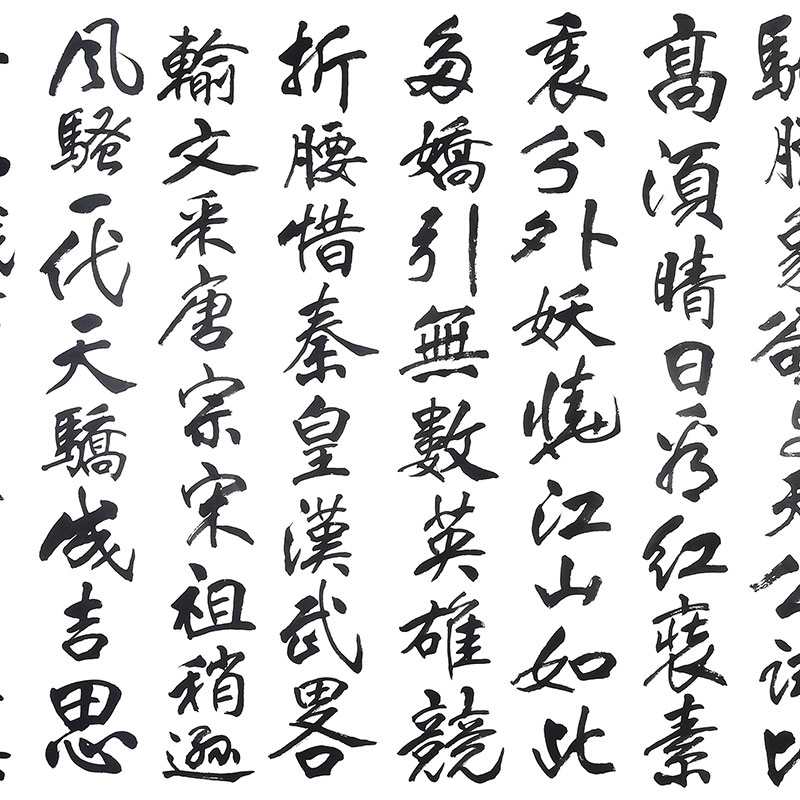 馳臘象欲与天公試比
高須晴日看紅裝素
裹分外妖嬈江山如此
多嬌引無數英雄競
折腰惜秦皇漢武畧
輸文采唐宗宋祖稍遜
風騷一代天驕成吉思